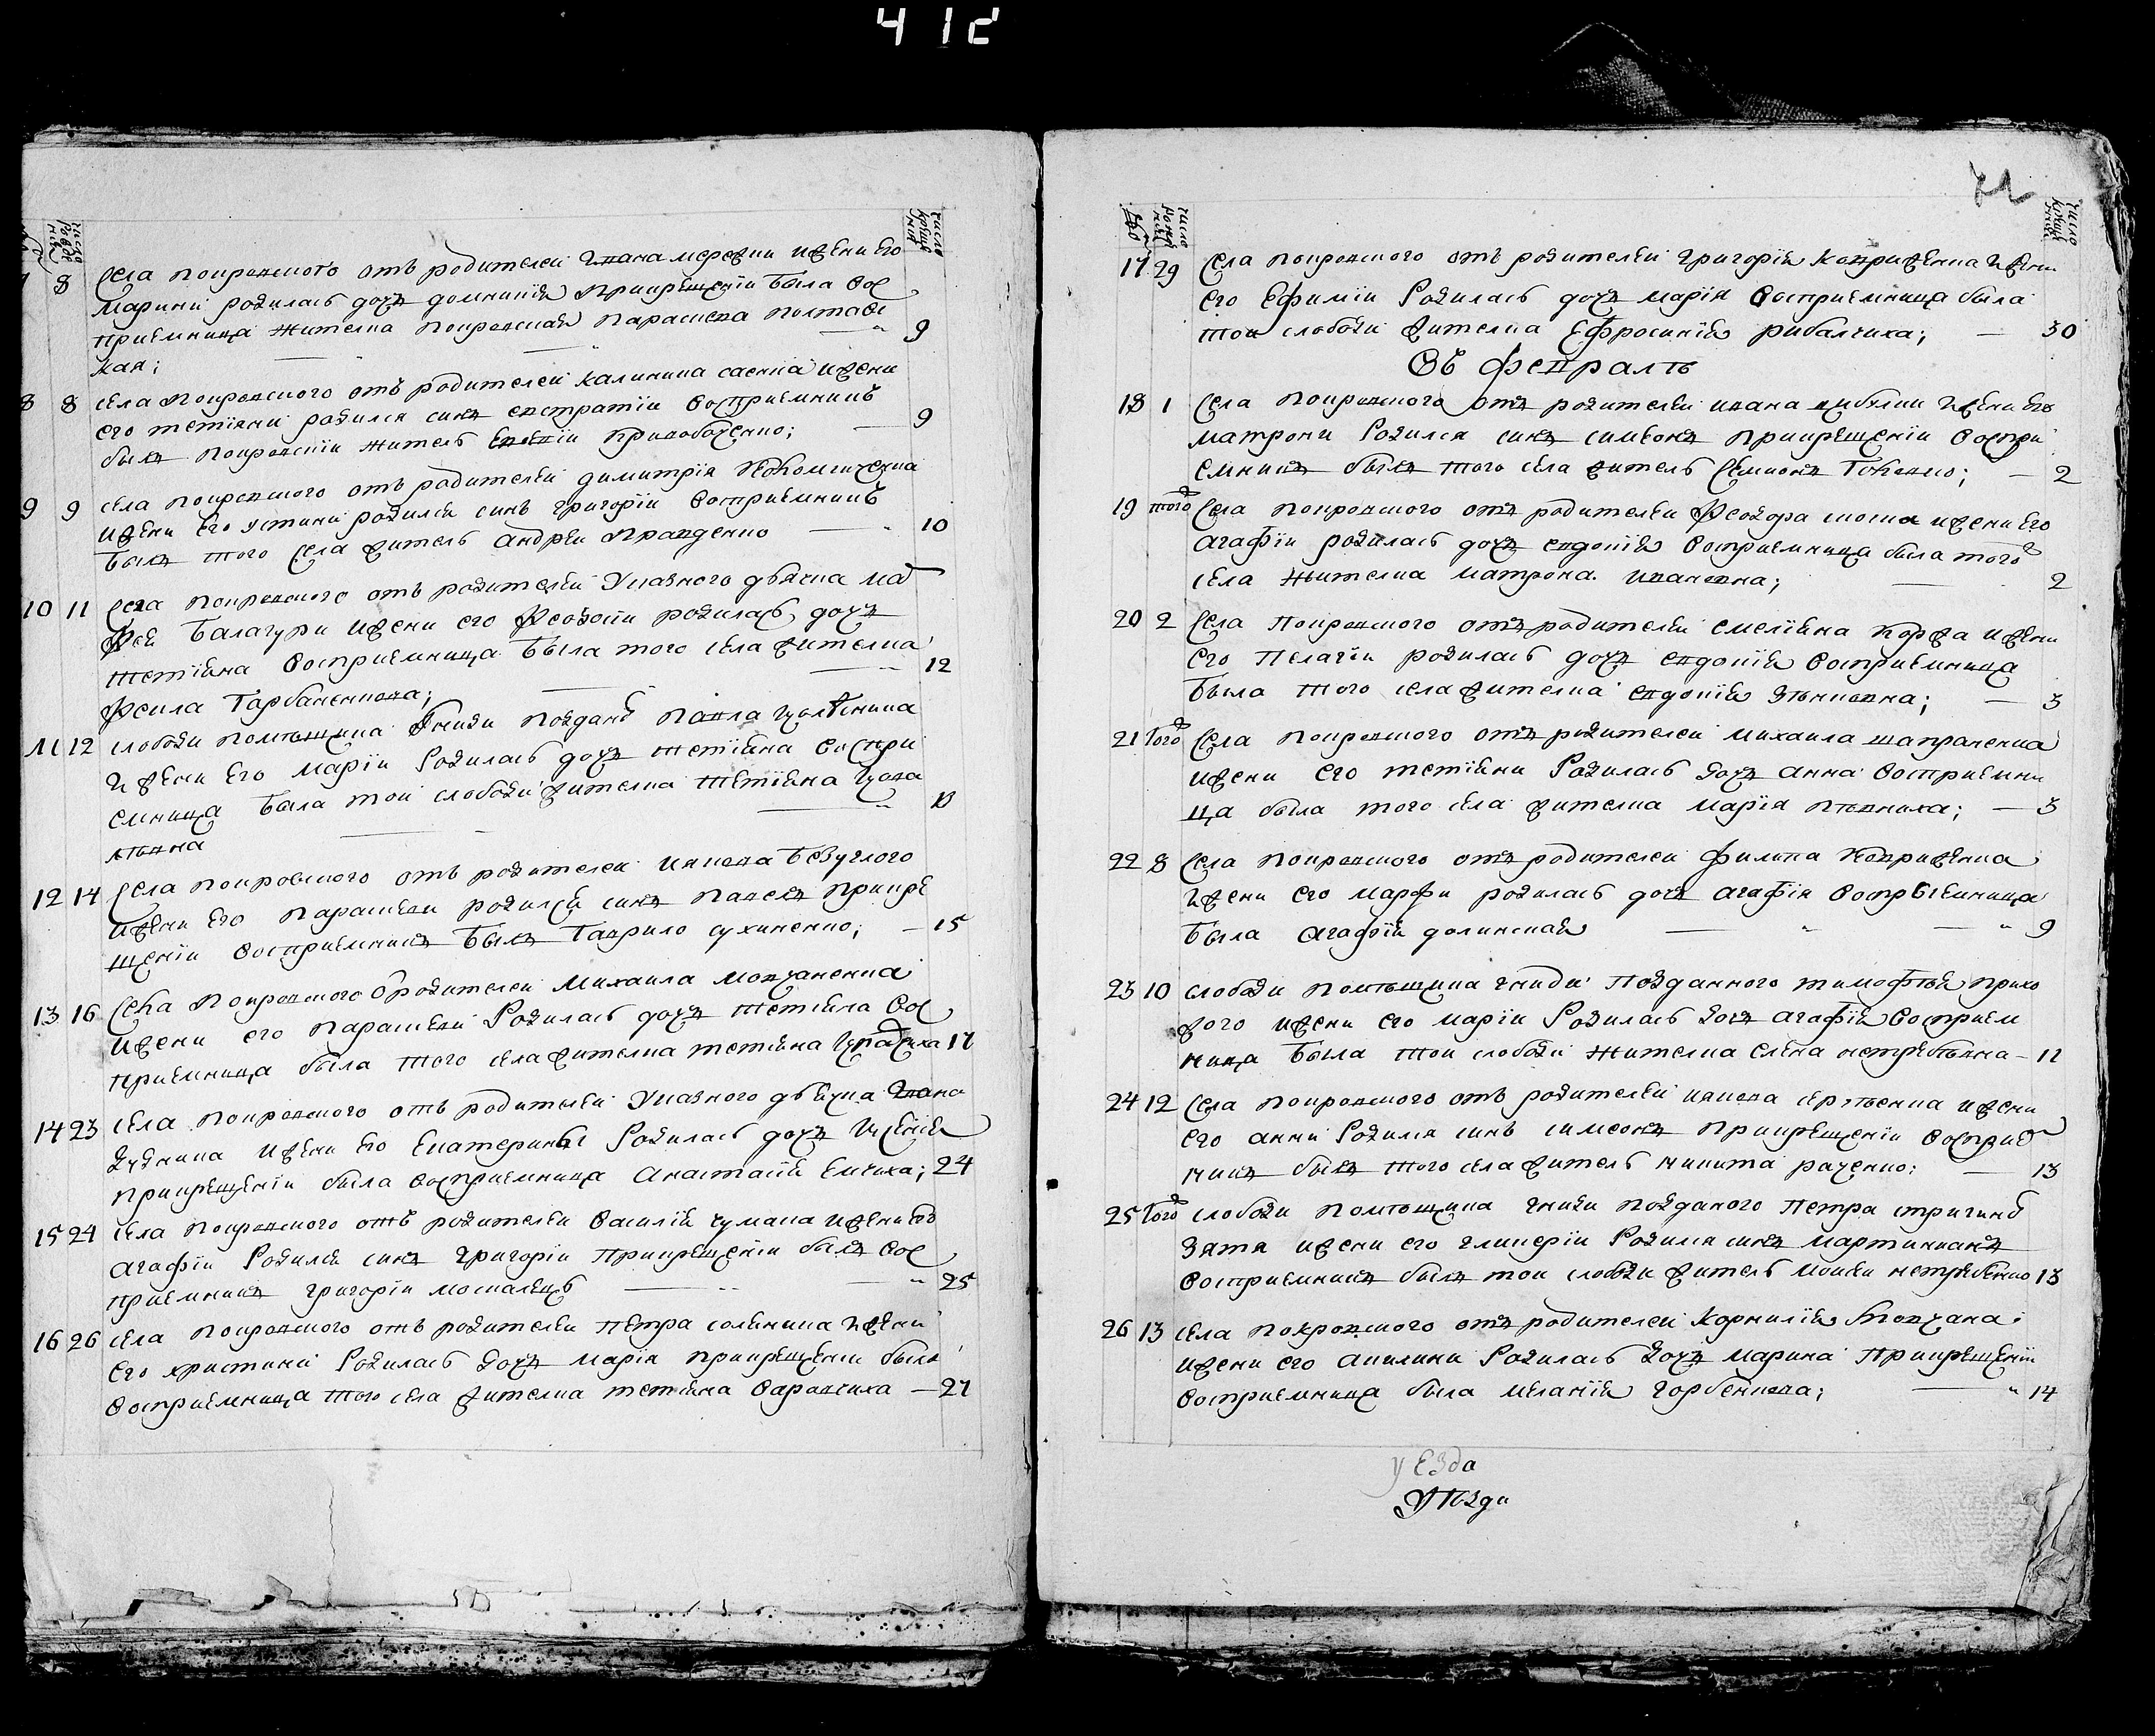 412
число крещенія
число рожденія
7 8 Села покровского отъ родителей Ивана мережки и жени его
марини родилась дочь домникія Прикрещеніи Была вос
приемница жителка покровская параскева полтавс
кая; 9
8 8 села покровского отъ родителей калиника саенка и жени
его тетіяни родился синъ евстратіи восприемникъ
былъ покровскіи житель Криворученко; 9
9 9 села покровского отъ родителей димитрія
и жени его устини родился синъ григоріи восприемникъ
Былъ того села житель андрей Правденко 10
10 11 Села покровского отъ родителей Указного дьячка мат
фея Балагури и жени его феодосіи родилась дочь
тетіяна восприемница Была того села жителка
фекла Гарбаненкова; 12
11 12 слободи помѣщика Гниди подданого павла
и жени его маріи Родилась дочь тетіяна воспри
емница Была тои слободи жителка тетіяна
13
12 14 Села покровского отъ родителей иякова Безуглого
и жени его параскеви родился синъ павелъ прикре
щеніи восприемникъ Былъ Гаврило сухиненко; 15
13 16 Села покровского от родителей михаила мовчаненка
и жени его параскеви Родилась дочь тетіяна вос
приемница была того села жителка тетіяна 17
14 23 села покровского отъ родителей Указного дьячка Ивана
дудника и жени его екатерины Родилась дочь
прикрещеніи была восприемница анастасія 24
15 24 села покровского отъ родителей василія чумака и жени его
агафіи Родился синъ григоріи прикрещеніи былъ вос
приемникъ григоріи москалецъ 25
16 26 села покровского отъ родителей петра соленика и жени
его христини Родилась дочь марія прикрещеніи была
восприемница того села жителка тетіяна 27
число рожденія
число крещенія
17 29 Села покровского отъ родителей григорія ковриженка и жени
его ефиміи Родилась дочь марія восприемница была
тои слободи жителка ефросинія рибалчиха; 30
Въ февралѣ
18 1 Села покровского отъ родителей ивана цибулки и жени его
матрони Родился синъ симеонъ прикрещеніи воспри
емникъ былъ того села житель семионъ 2
19 того Села покровского отъ родителей феодора и жени его
агафіи родилась дочь евдокія восприемница была того
села жителка матрона ивановна; 2
20 2 Села покровского отъ родителей емеліяна коржа и жени
его пелагіи родилась дочь евдокія восприемница
Была того села жителка евдокія зѣнковна; 3
21 того Села покровского отъ родителей михаила шапраненка
и жени его тетіяни Родилась дочь анна восприемни
ца была того села жителка марія пѣвниха; 3
22 8 Села покровского отъ родителей филипа ковриженка
и жени его марфи родилась дочь агафія восприемница
Была агафія долинская 9
23 10 слободи помѣщика гниди подданного тимофѣя прихо
жого и жени его маріи Родилась дочь агафія восприем
ница Была тои слободи жителка елена нетребѣвна 11
24 12 Села покровского отъ родителей иякова сергѣенка и жени
его анни Родился синъ симеонъ прикрещеніи восприе
никъ былъ того села житель никита раченко; 13
25 того слободи помѣщика гниди подданого петра стригина
зятя и жени его гликеріи Родился синъ мартиниянъ
восприемникъ былъ тои слободи житель моисеи нетребенко 13
26 13 села покровского отъ родителей корнилія товчана
и жени его акилини Родилась дочь марина прикрещеніи
восприемница была меланія горбенкова; 14
уезда
уѣзди